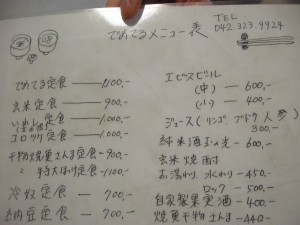 でめてるメニュー表
TEL
042.323.9924
でめてる定食 ―― 1100.-
玄米定食 ―― 900.-
定食 ― 1000.-
コロッケ定食 ― 1000.-
干物焼魚さんま定食 ― 900.-
〃 特大ほっけ定食 ― 1100.-
冷奴定食 ― 700.-
納豆定食 ― 700.-
エビスビール
(中) ― 600.-
(小) ― 400.-
ジュース(リンゴ ブドウ 人参)
300.-
純米酒玉の光 ― 600.-
玄米焼酎
お湯わり 水わり ― 450.-
ロック ― 500.-
自家製果実酒 ― 400.-
焼魚干物 さんま ― 440.-